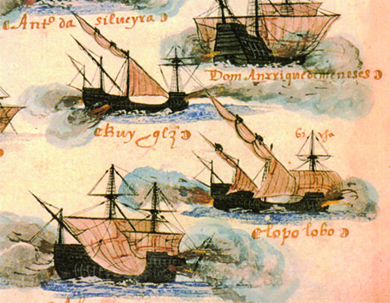 Antº da silueyra
Dom Anrrique de meneses
Ruy glz̃
lopo lobo